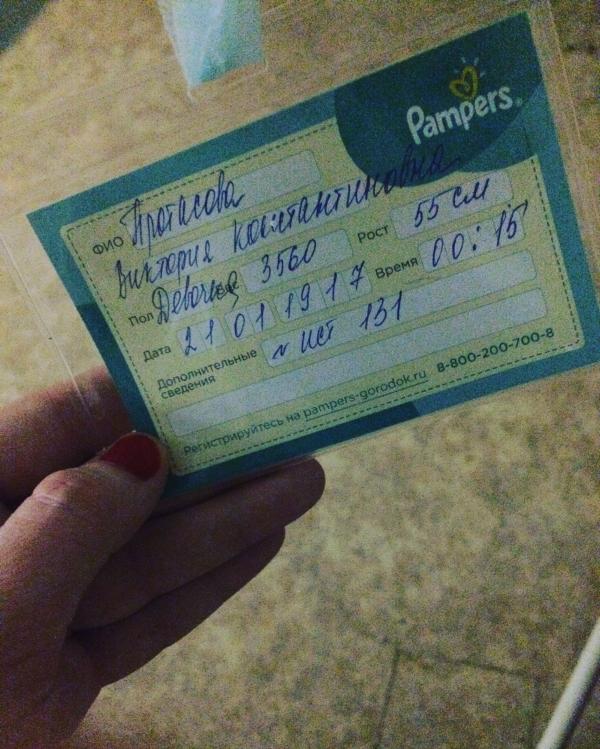 Pampers
ФИО Протасова
Виктория Константиновна
Пол Девочка Вес 3560 Рост 55 см
Дата 21 01 1917 Время 00:15
Дополнительные
сведения № ист 131
Регистрируйтесь на pampers-gorodok.ru 8-800-200-700-8